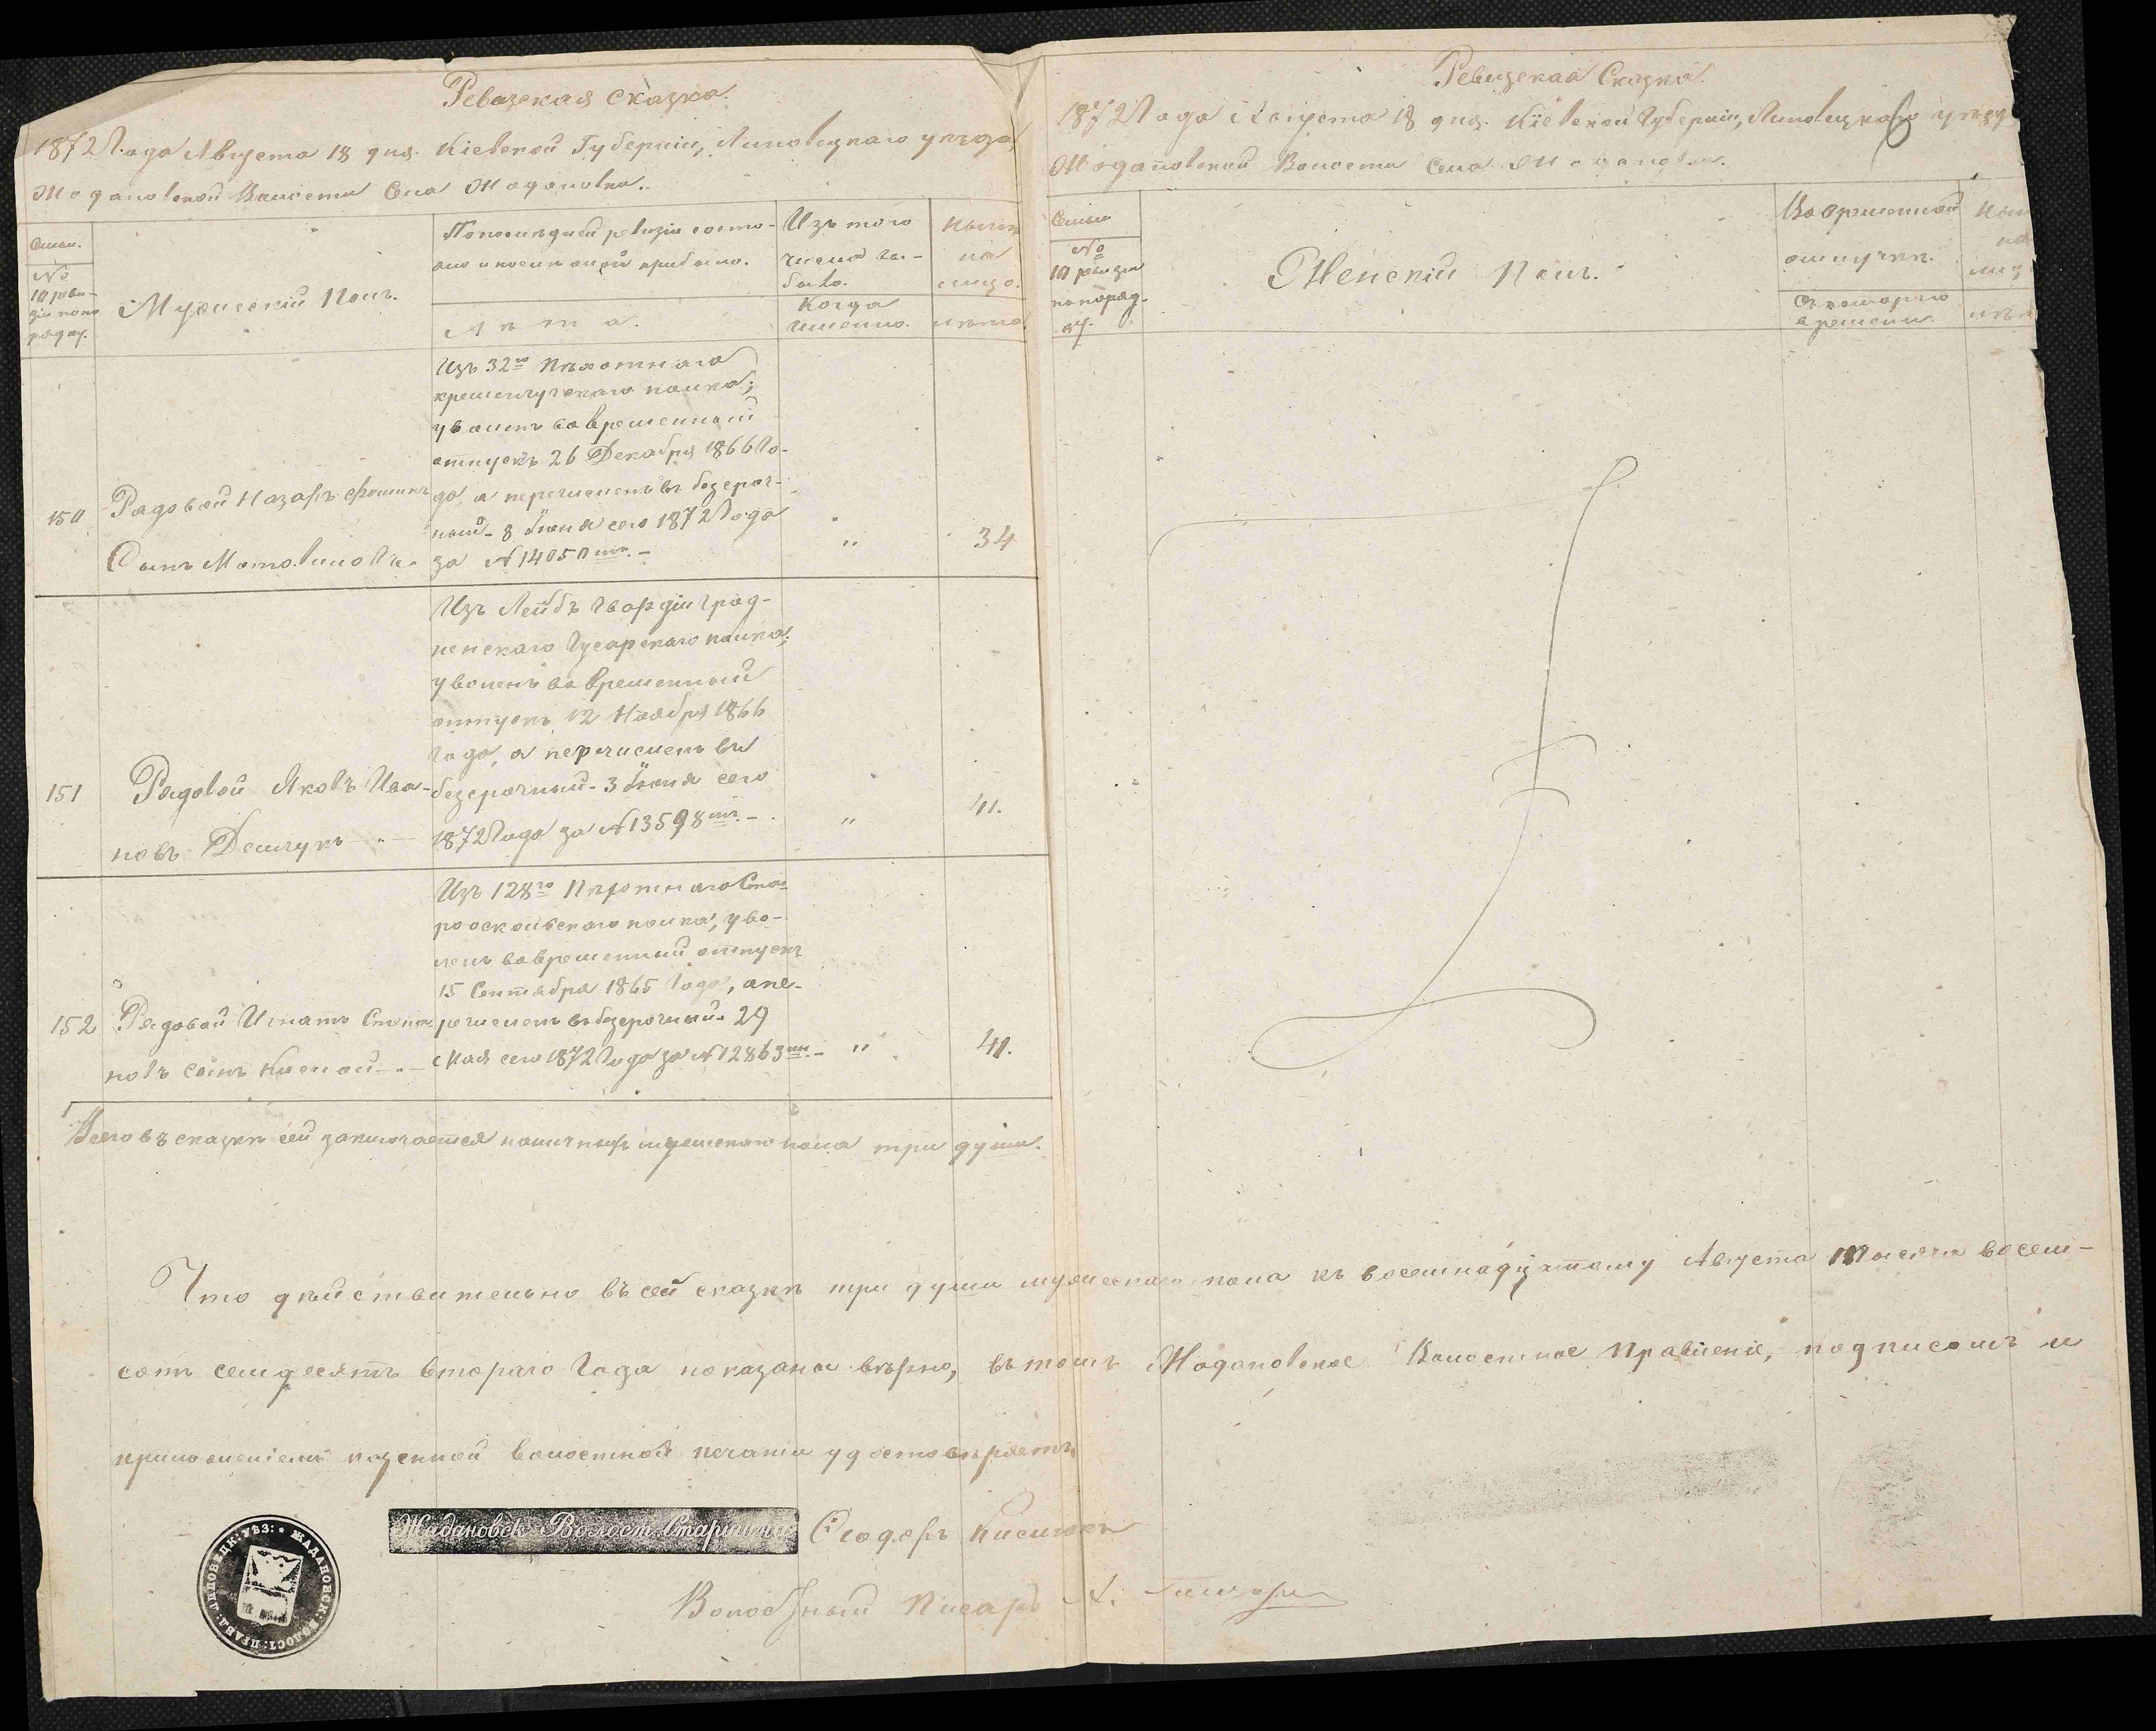 Ревизская сказка.
1872 Года Августа 18 дня. Кіевской Губерніи, Липовецкаго уѣзда,
Жадановской Волости Села Жадановки.
Семьи.
№
10 реви-
зіи по по
рядку.
Мужескій Полъ.
По последней ревизіи состо-
яло и после оной прибыло.
Лѣта.
Изъ того
числа вы-
было.
Когда
именно.
Нынѣ
на
лицо.
лѣта
150
Рядовой Назаръ Фоминъ
Сынъ Мотовиловъ.
Изъ 32го Пѣхотнаго
кременчугскаго полка;
уволенъ во временный
отпускъ 26 Декабря 1866 Го-
да а перечисленъ въ безсроч-
ный - 8 Іюня сего 1872 Года
за № 14050мъ. -
"
34
151
Рядовой Яковъ Ива-
новъ Демчукъ
Изъ Лейбъ Гвардіи Град-
ненскаго Гусарскаго полка;
уволенъ во временный
отпускъ 12 Ноября 1866
Года, а перечисленъ въ
безсрочный - 3 Іюня сего
1872 Года за № 13598мъ. -
"
41.
152
Рядовой Игнатъ Степа
новъ сынъ Кислой
Изъ 128го Пѣхотнаго Ста-
рооскольскаго полка, уво-
ленъ во временный отпускъ
15 Сентября 1865 Года, а пе-
речисленъ въ безсрочный - 29
Мая сего 1872 Года за № 12863мъ. -
"
41.
Всего въ сказкѣ сей заключается наличныхъ мужескаго пола три души.
Ревизская Сказка.
1872 Года Августа 18 дня. Кіевской Губерніи, Липовецкаго уѣзд
Жадановской Волости Села Жадановки.
Семьи
№
10 ревизіи
по поряд-
ку.
Женскій Полъ.
Во временной
отлучкѣ.
Съ котораго
времени.
Нын
на
лиц
лѣт
Что дѣйствительно въ сей сказкѣ три души мужескаго пола къ восемнадцатому Августа Тысяча восем-
сотъ семдесятъ втораго Года показана вѣрно, въ томъ Жадановское Волостное Правленіе, подписомъ и
приложеніемъ казенной волостной печати удостовѣряетъ
Жадановск. Волост. Старшина Ѳеодоръ Кислюкъ
Волостный Писарь А.
ЖАДАНОВСК: ВОЛОСТ: ПРАВЛ: ЛИПОВЕЦК: УѢЗ: